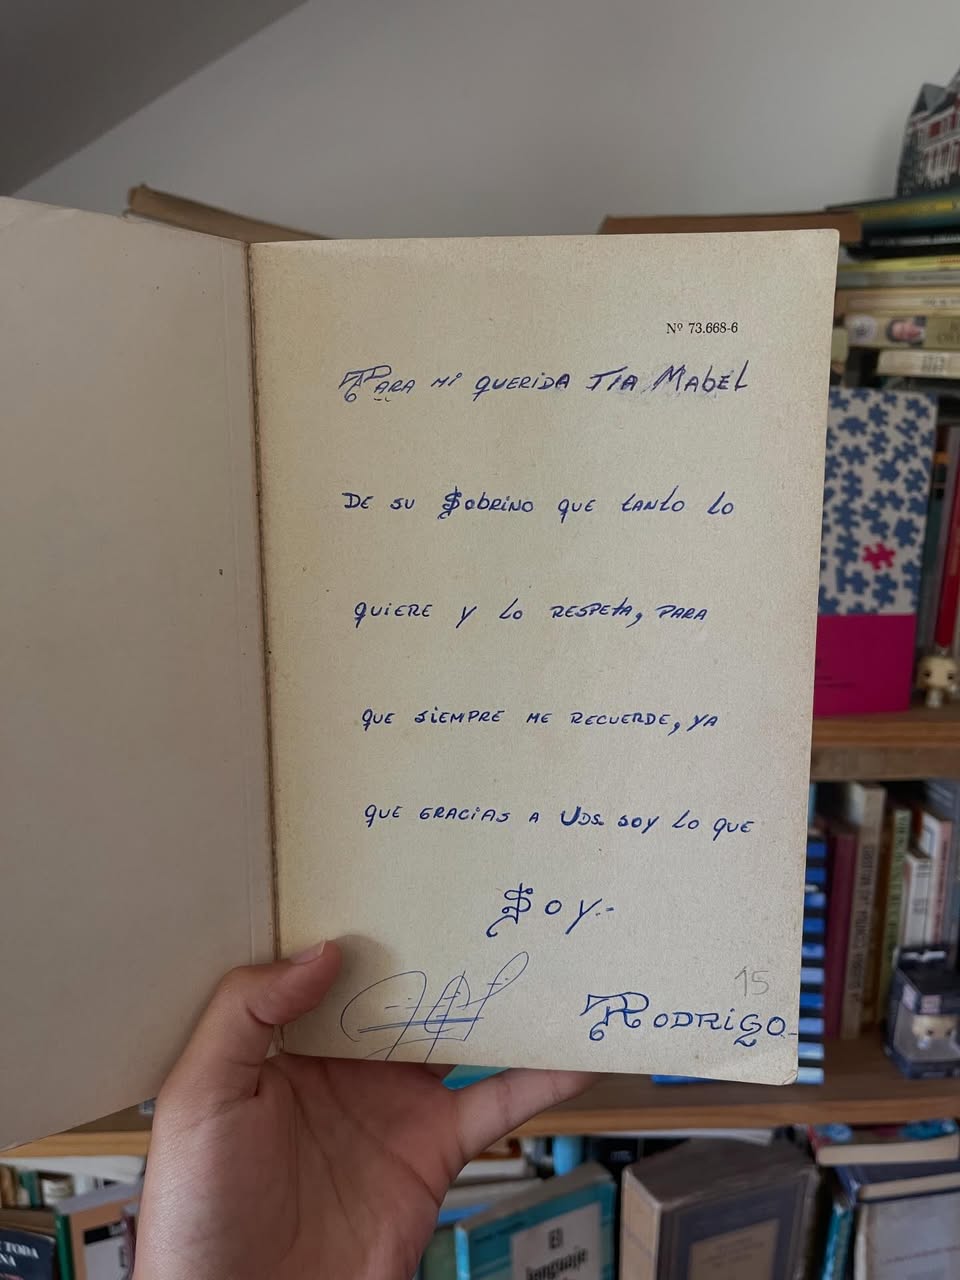 Nº 73.668-6
PARA MI QUERIDA TIA MABEL
DE SU SOBRINO QUE TANTO LO
QUIERE Y LO RESPETA, PARA
QUE SIEMPRE ME RECUERDE, YA
QUE GRACIAS A UDS. SOY LO QUE
SOY.-
15
RODRIGO-
El
lenguaje
TODA